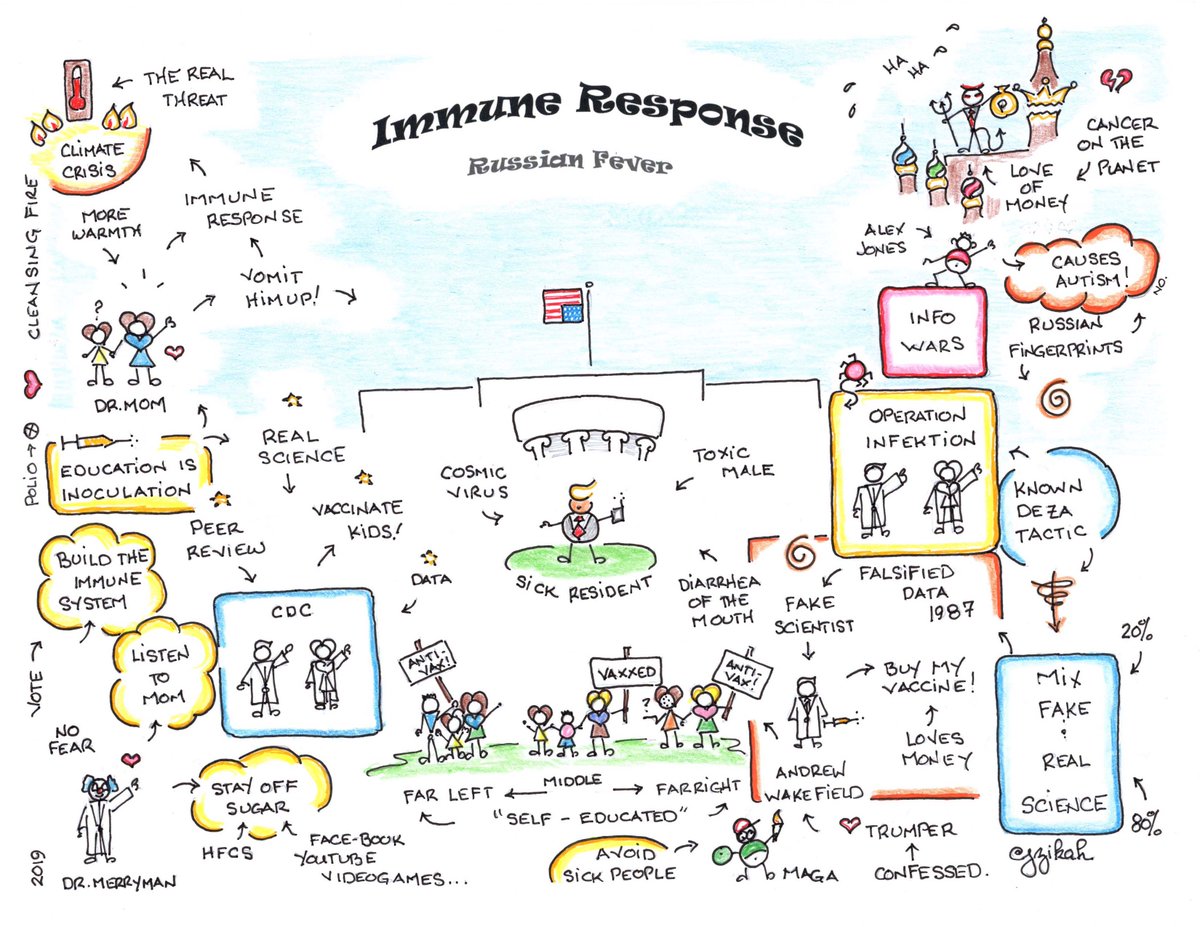 Immune Response
Russian Fever
THE REAL
THREAT
CLIMATE
CRISIS
CLEANSING FIRE
MORE
WARMTH
IMMUNE
RESPONSE
VOMIT
HIM UP!
?
DR. MOM
POLIO
EDUCATION IS
INOCULATION
REAL
SCIENCE
PEER
REVIEW
VACCINATE
KIDS!
BUILD THE
IMMUNE
SYSTEM
LISTEN
TO
MOM
VOTE
NO
FEAR
CDC
DATA
STAY OFF
SUGAR
HFCS
FACE-BOOK
YOUTUBE
VIDEOGAMES...
DR. MERRYMAN
2019
COSMIC
VIRUS
TOXIC
MALE
SICK RESIDENT
DIARRHEA
OF THE
MOUTH
ANTI-
VAX!
VAXXED
ANTI-
VAX!
?
FAR LEFT
MIDDLE
FAR RIGHT
"SELF-EDUCATED"
AVOID
SICK PEOPLE
MAGA
HA
HA
LOVE
OF
MONEY
CANCER
ON THE
PLANET
ALEX
JONES
CAUSES
AUTISM!
NO.
INFO
WARS
RUSSIAN
FINGERPRINTS
OPERATION
INFEKTION
KNOWN
DEZA
TACTIC
FALSIFIED
DATA
1987
FAKE
SCIENTIST
BUY MY
VACCINE!
LOVES
MONEY
ANDREW
WAKEFIELD
TRUMPER
CONFESSED.
20%
MIX
FAKE
&
REAL
SCIENCE
80%